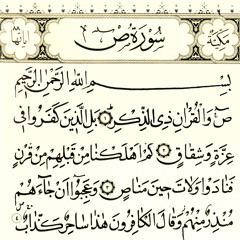 سُورَةُ صٓ
مَكِّيَّة
آيَاتُهَا ٨٨
بِسْمِ اللَّهِ الرَّحْمَٰنِ الرَّحِيمِ
صٓ وَالْقُرْآنِ ذِي الذِّكْرِ ۝ بَلِ الَّذِينَ كَفَرُوا فِي
عِزَّةٍ وَشِقَاقٍ ۝ كَمْ أَهْلَكْنَا مِنْ قَبْلِهِمْ مِنْ قَرْنٍ
فَنَادَوْا وَلَاتَ حِينَ مَنَاصٍ ۝ وَعَجِبُوا أَنْ جَاءَهُمْ
مُنْذِرٌ مِنْهُمْ وَقَالَ الْكَافِرُونَ هَٰذَا سَاحِرٌ كَذَّابٌ